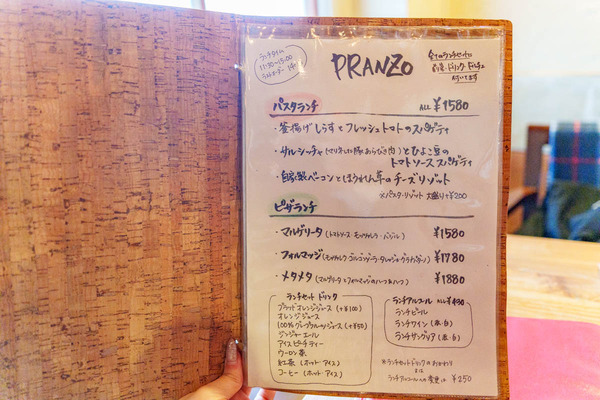 ランチタイム
11:30~15:00
ラストオーダー 14:
PRANZO
全てのランチセットに
前菜・ドリンク・ドルチェ
付いてます
パスタランチ ALL ¥1580
・釜揚げしらすとフレッシュトマトのスパゲティ
・サルシッチャ(マリネした豚あらびき肉)とひよこ豆の
トマトソース スパゲティ
・自家製ベーコンとほうれん草のチーズリゾット
※パスタ・リゾット 大盛り+¥200
ピザランチ
・マルゲリータ(トマトソース・モッツァレラ・バジル) ¥1580
・フォルマッジ(モッツァレラ・ゴルゴンゾーラ・タレッジョ・グラナパダーノ) ¥1780
・メタメタ(マルゲリータとフォルマッジのハーフ&ハーフ) ¥1880
ランチセット ドリンク
ブラッドオレンジジュース(+¥100)
オレンジジュース
100%グレープフルーツジュース(+¥50)
ジンジャーエール
アイスピーチティー
ウーロン茶
紅茶(ホット・アイス)
コーヒー(ホット・アイス)
ランチアルコール ALL ¥490
ランチビール
ランチワイン(赤・白)
ランチサングリア(赤・白)
※ランチセットドリンクのおかわり
又は
ランチアルコールへの変更は ¥250